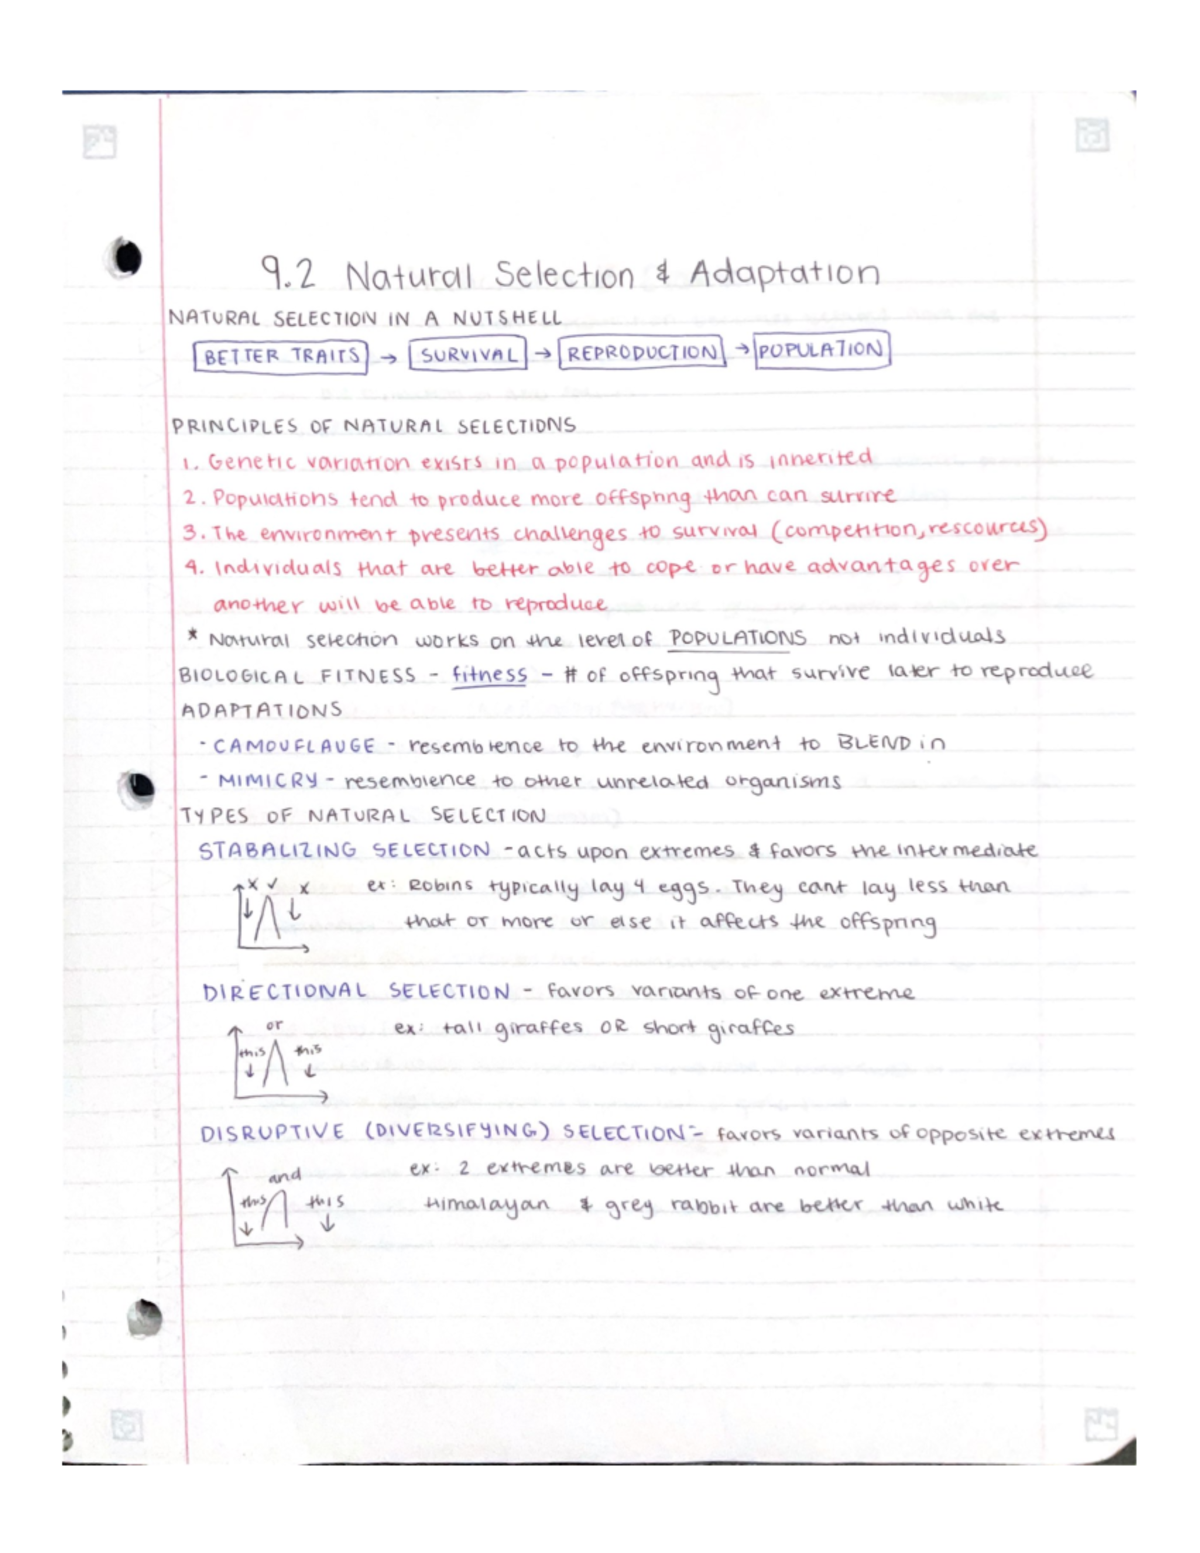 9.2 Natural Selection & Adaptation
NATURAL SELECTION IN A NUTSHELL
BETTER TRAITS → SURVIVAL → REPRODUCTION → POPULATION
PRINCIPLES OF NATURAL SELECTIONS
1. Genetic variation exists in a population and is inherited
2. Populations tend to produce more offspring than can survive
3. The environment presents challenges to survival (competition, rescources)
4. Individuals that are better able to cope or have advantages over
another will be able to reproduce
* Natural selection works on the level of POPULATIONS not individuals
BIOLOGICAL FITNESS - fitness - # of offspring that survive later to reproduce
ADAPTATIONS
- CAMOUFLAUGE - resemblence to the environment to BLEND in
- MIMICRY - resemblence to other unrelated organisms
TYPES OF NATURAL SELECTION
STABALIZING SELECTION - acts upon extremes & favors the intermediate
x ✓ x
ex: Robins typically lay 4 eggs. They cant lay less than
that or more or else it affects the offspring
DIRECTIONAL SELECTION - favors variants of one extreme
or
this this
ex: tall giraffes OR short giraffes
DISRUPTIVE (DIVERSIFYING) SELECTION - favors variants of opposite extremes
and
this this
ex: 2 extremes are better than normal
Himalayan & grey rabbit are better than white